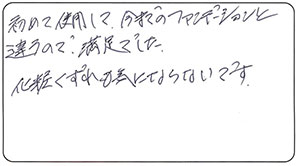 初めて使用して、今までのファンデーションと
違うので、満足でした。
化粧くずれも気にならないです。